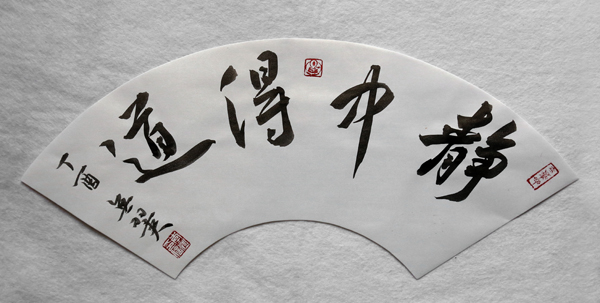 静中得道
丁酉